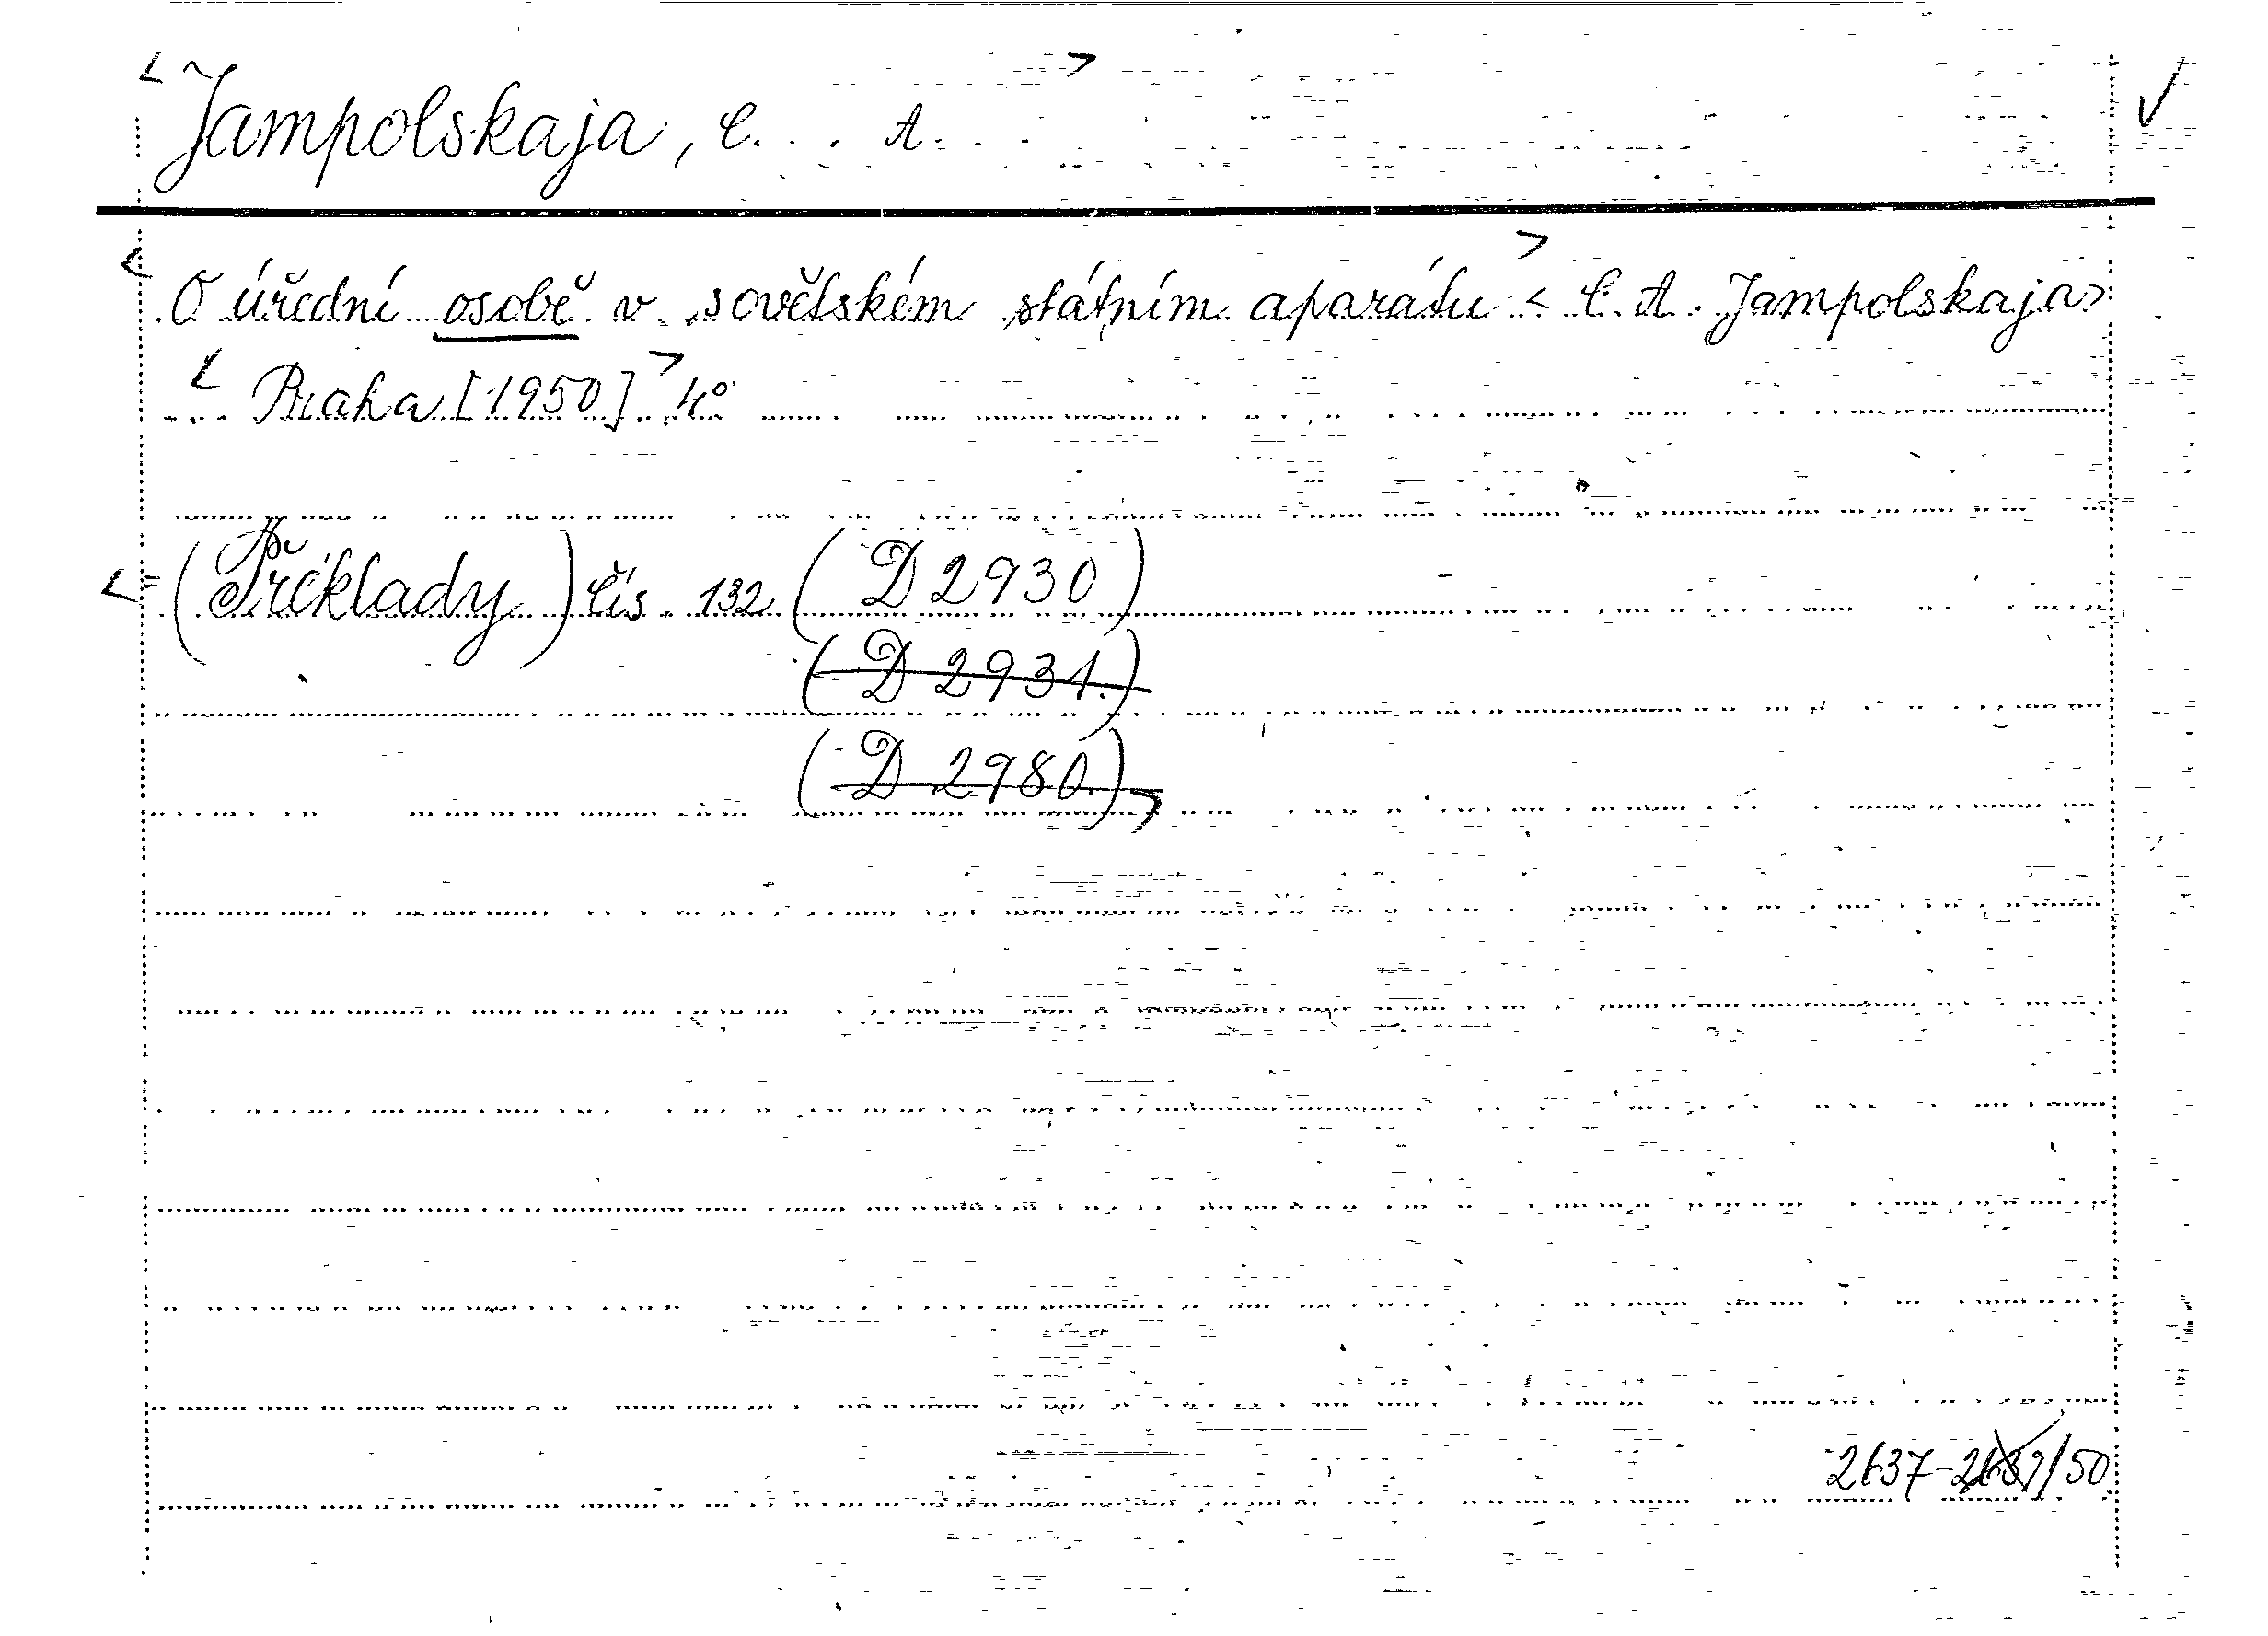 < Jampolskaja, C. . . A. >
< O úřední osobě v sovětském státním aparátu > < C. A. Jampolskaja >
< Praha [1950] > 4°
< = (Překlady) čís. 132 (D 2930)
(D 2931.)
(D 2980.) >
2637-2639/50